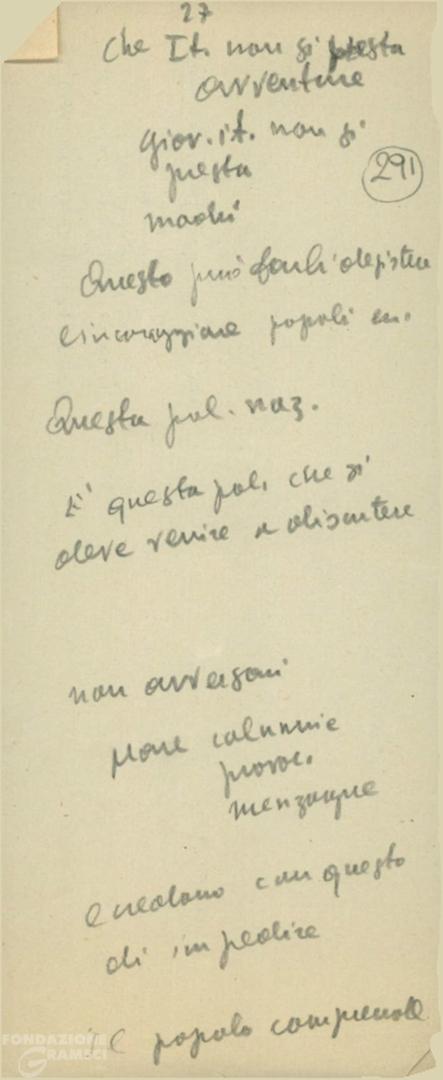 27
Che It. non si presta
avventure
giov. it. non si
presta
291
Questo può
e incoraggiare popoli eu.
Questa pol. naz.
E' questa pol. che si
deve venire a discutere
non avversari
calunnie
provoc.
menzogne
credono con questo
di impedire
il popolo comprende
FONDAZIONE
GRAMSCI